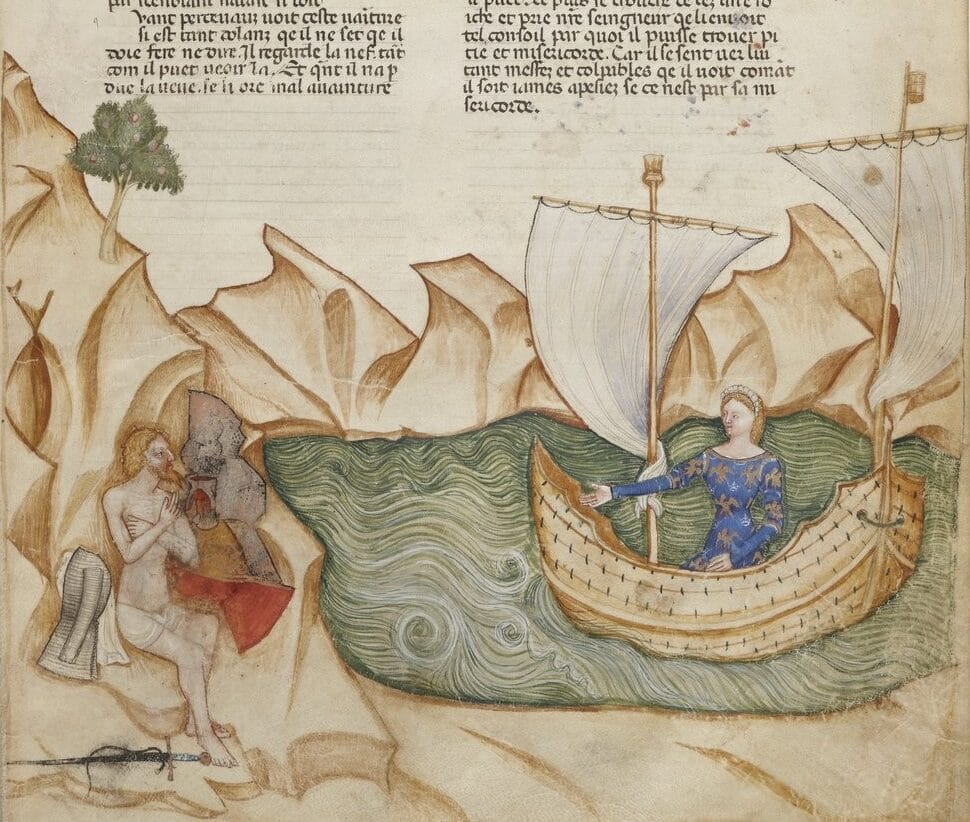 par
uant percevaux uoit ceste uauture
si est tant dolanz qe il ne set qe il
doie fere ne dire. Il regarde la nef tāt
com il puet ueoir la. Et qnt il na p
due la ueue. se li ore mal auainture
iche et prie nr̄e seingneur qe li enuoit
tel consoil par quoi il puisse trouer pi
tie et misericorde. Car il se sent uer lui
tant mesfez et colpables qe il
il soit iames apesiez se ce nest par sa mi
sericorde.